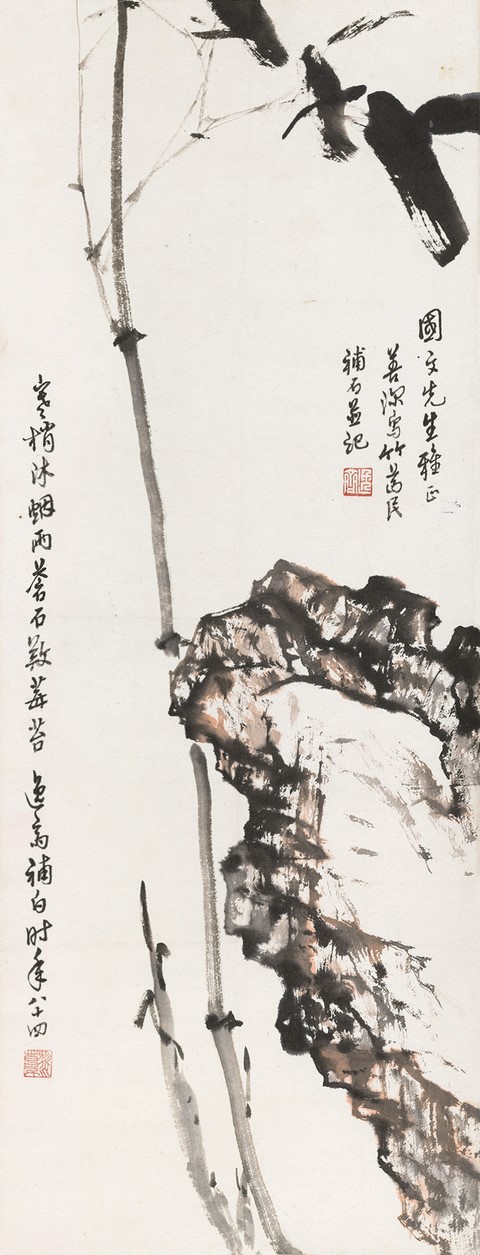 國文先生雅正
善深寫竹萬民
補石並記
寒梢沐烟雨蒼石數莓苔
逸髙補白时年八十四